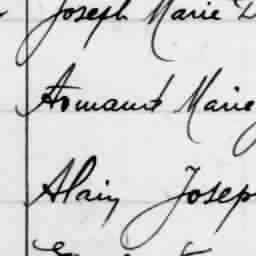 Joseph Marie D
Armand Marie
Alain Joseph